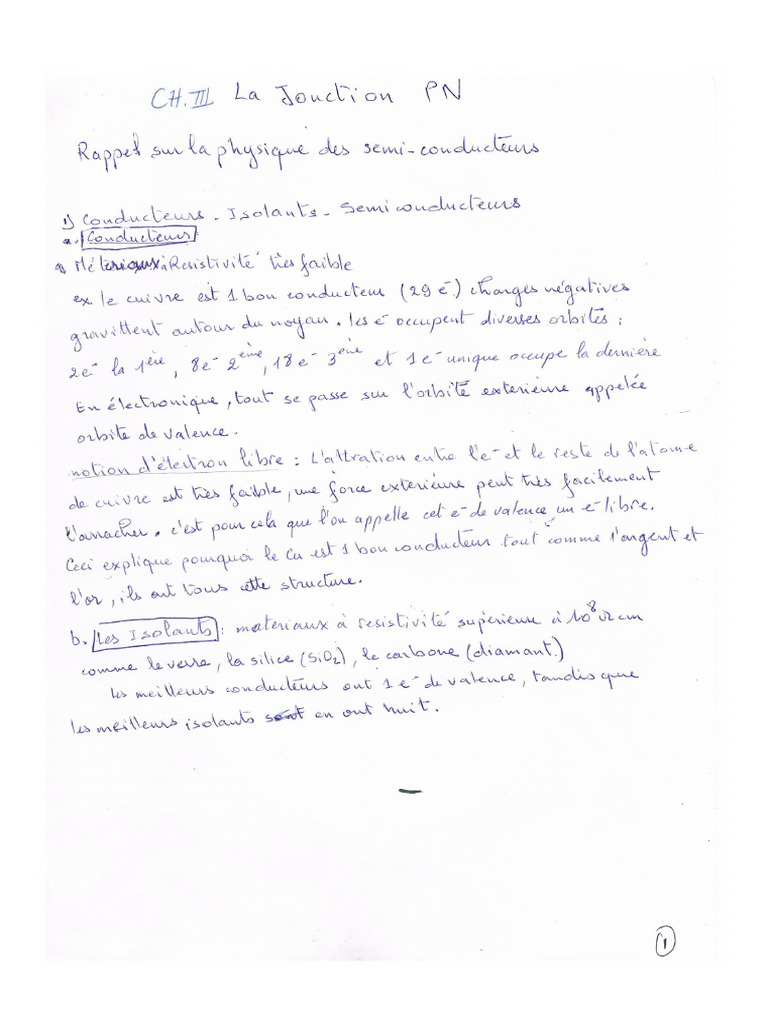 CH.III La Jonction PN
Rappel sur la physique des semi-conducteurs
1) Conducteurs - Isolants - Semiconducteurs
a. Conducteurs
Méteriaux à Resistivité très faible
ex le cuivre est 1 bon conducteur (29 e⁻) charges négatives
gravittent autour du noyau. les e⁻ occupent diverses orbites :
2e⁻ la 1ère, 8e⁻ 2ème, 18 e⁻ 3ème et 1 e⁻ unique occupe la dernière
En électronique, tout se passe sur l'orbite exterieure appelée
orbite de valence.
notion d'électron libre : L'attration entre l'e⁻ et le reste de l'atome
de cuivre est très faible, une force exterieure peut très facilement
l'arracher. c'est pour cela que l'on appelle cet e⁻ de valence un e⁻ libre.
Ceci explique pourquoi le Cu est 1 bon conducteur tout comme l'argent et
l'or, ils ont tous cette structure.
b. Les Isolants : materiaux à resistivité supérieure à 10⁸ Ω cm
comme le verre, la silice (SiO₂), le carbone (diamant.)
les meilleurs conducteurs ont 1 e⁻ de valence, tandis que
les meilleurs isolants en ont huit.
1